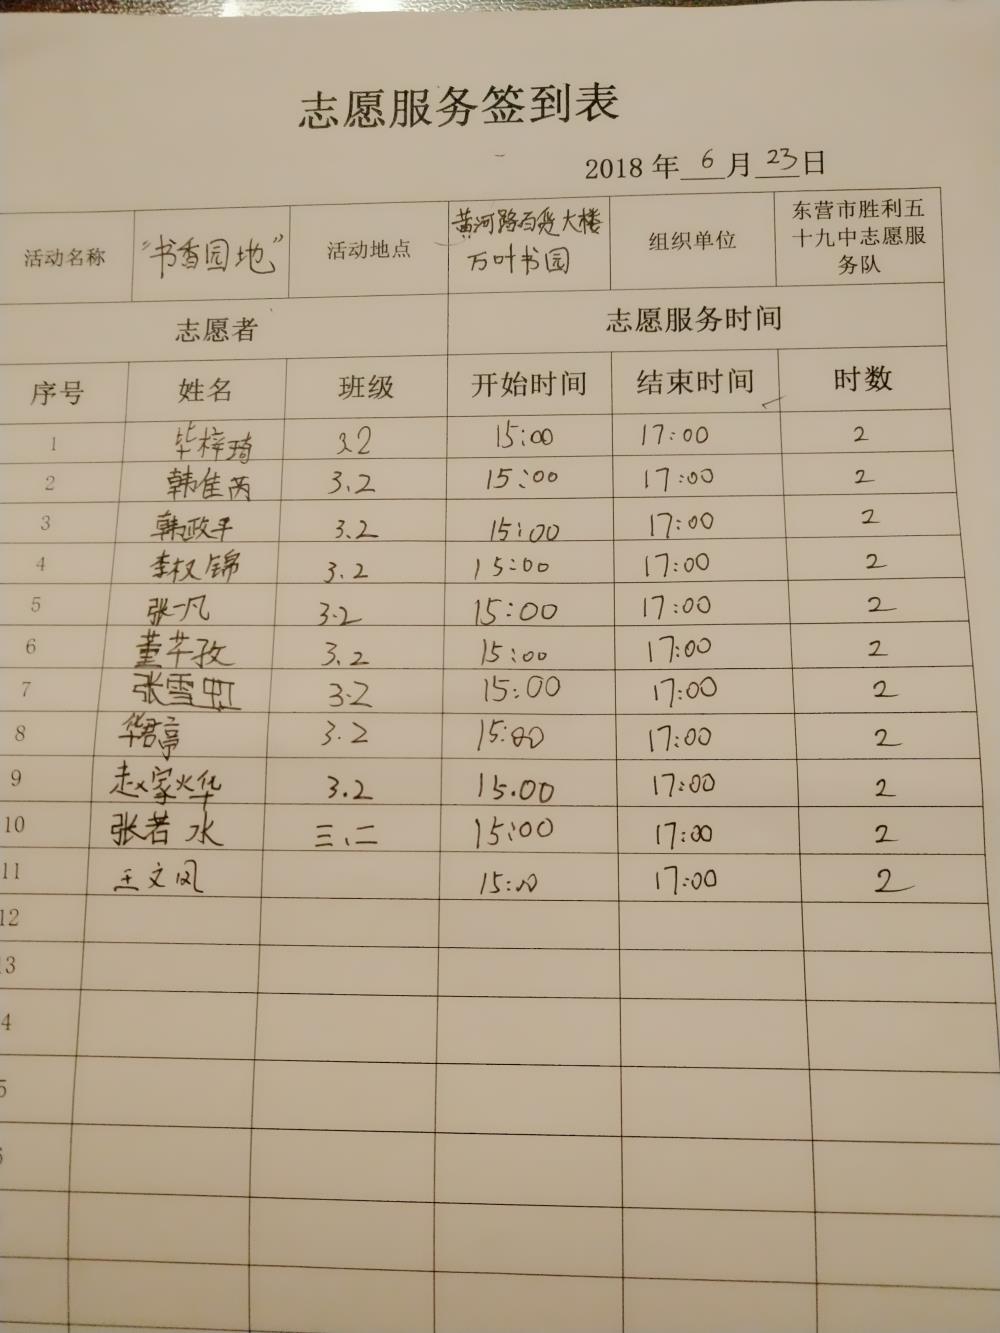 志愿服务签到表
2018 年 6 月 23 日
活动名称 “书香园地” 活动地点 黄河路百货大楼万叶书园 组织单位 东营市胜利五十九中志愿服务队
志愿者 志愿服务时间
序号 姓名 班级 开始时间 结束时间 时数
1 毕梓琦 3.2 15:00 17:00 2
2 韩佳芮 3.2 15:00 17:00 2
3 韩政平 3.2 15:00 17:00 2
4 李权锦 3.2 15:00 17:00 2
5 张一凡 3.2 15:00 17:00 2
6 董芊孜 3.2 15:00 17:00 2
7 张雪虹 3.2 15:00 17:00 2
8 华君亭 3.2 15:00 17:00 2
9 赵家烨 3.2 15.00 17:00 2
10 张若水 三.二 15:00 17:00 2
11 王文凤 15:00 17:00 2
12
13
4
5